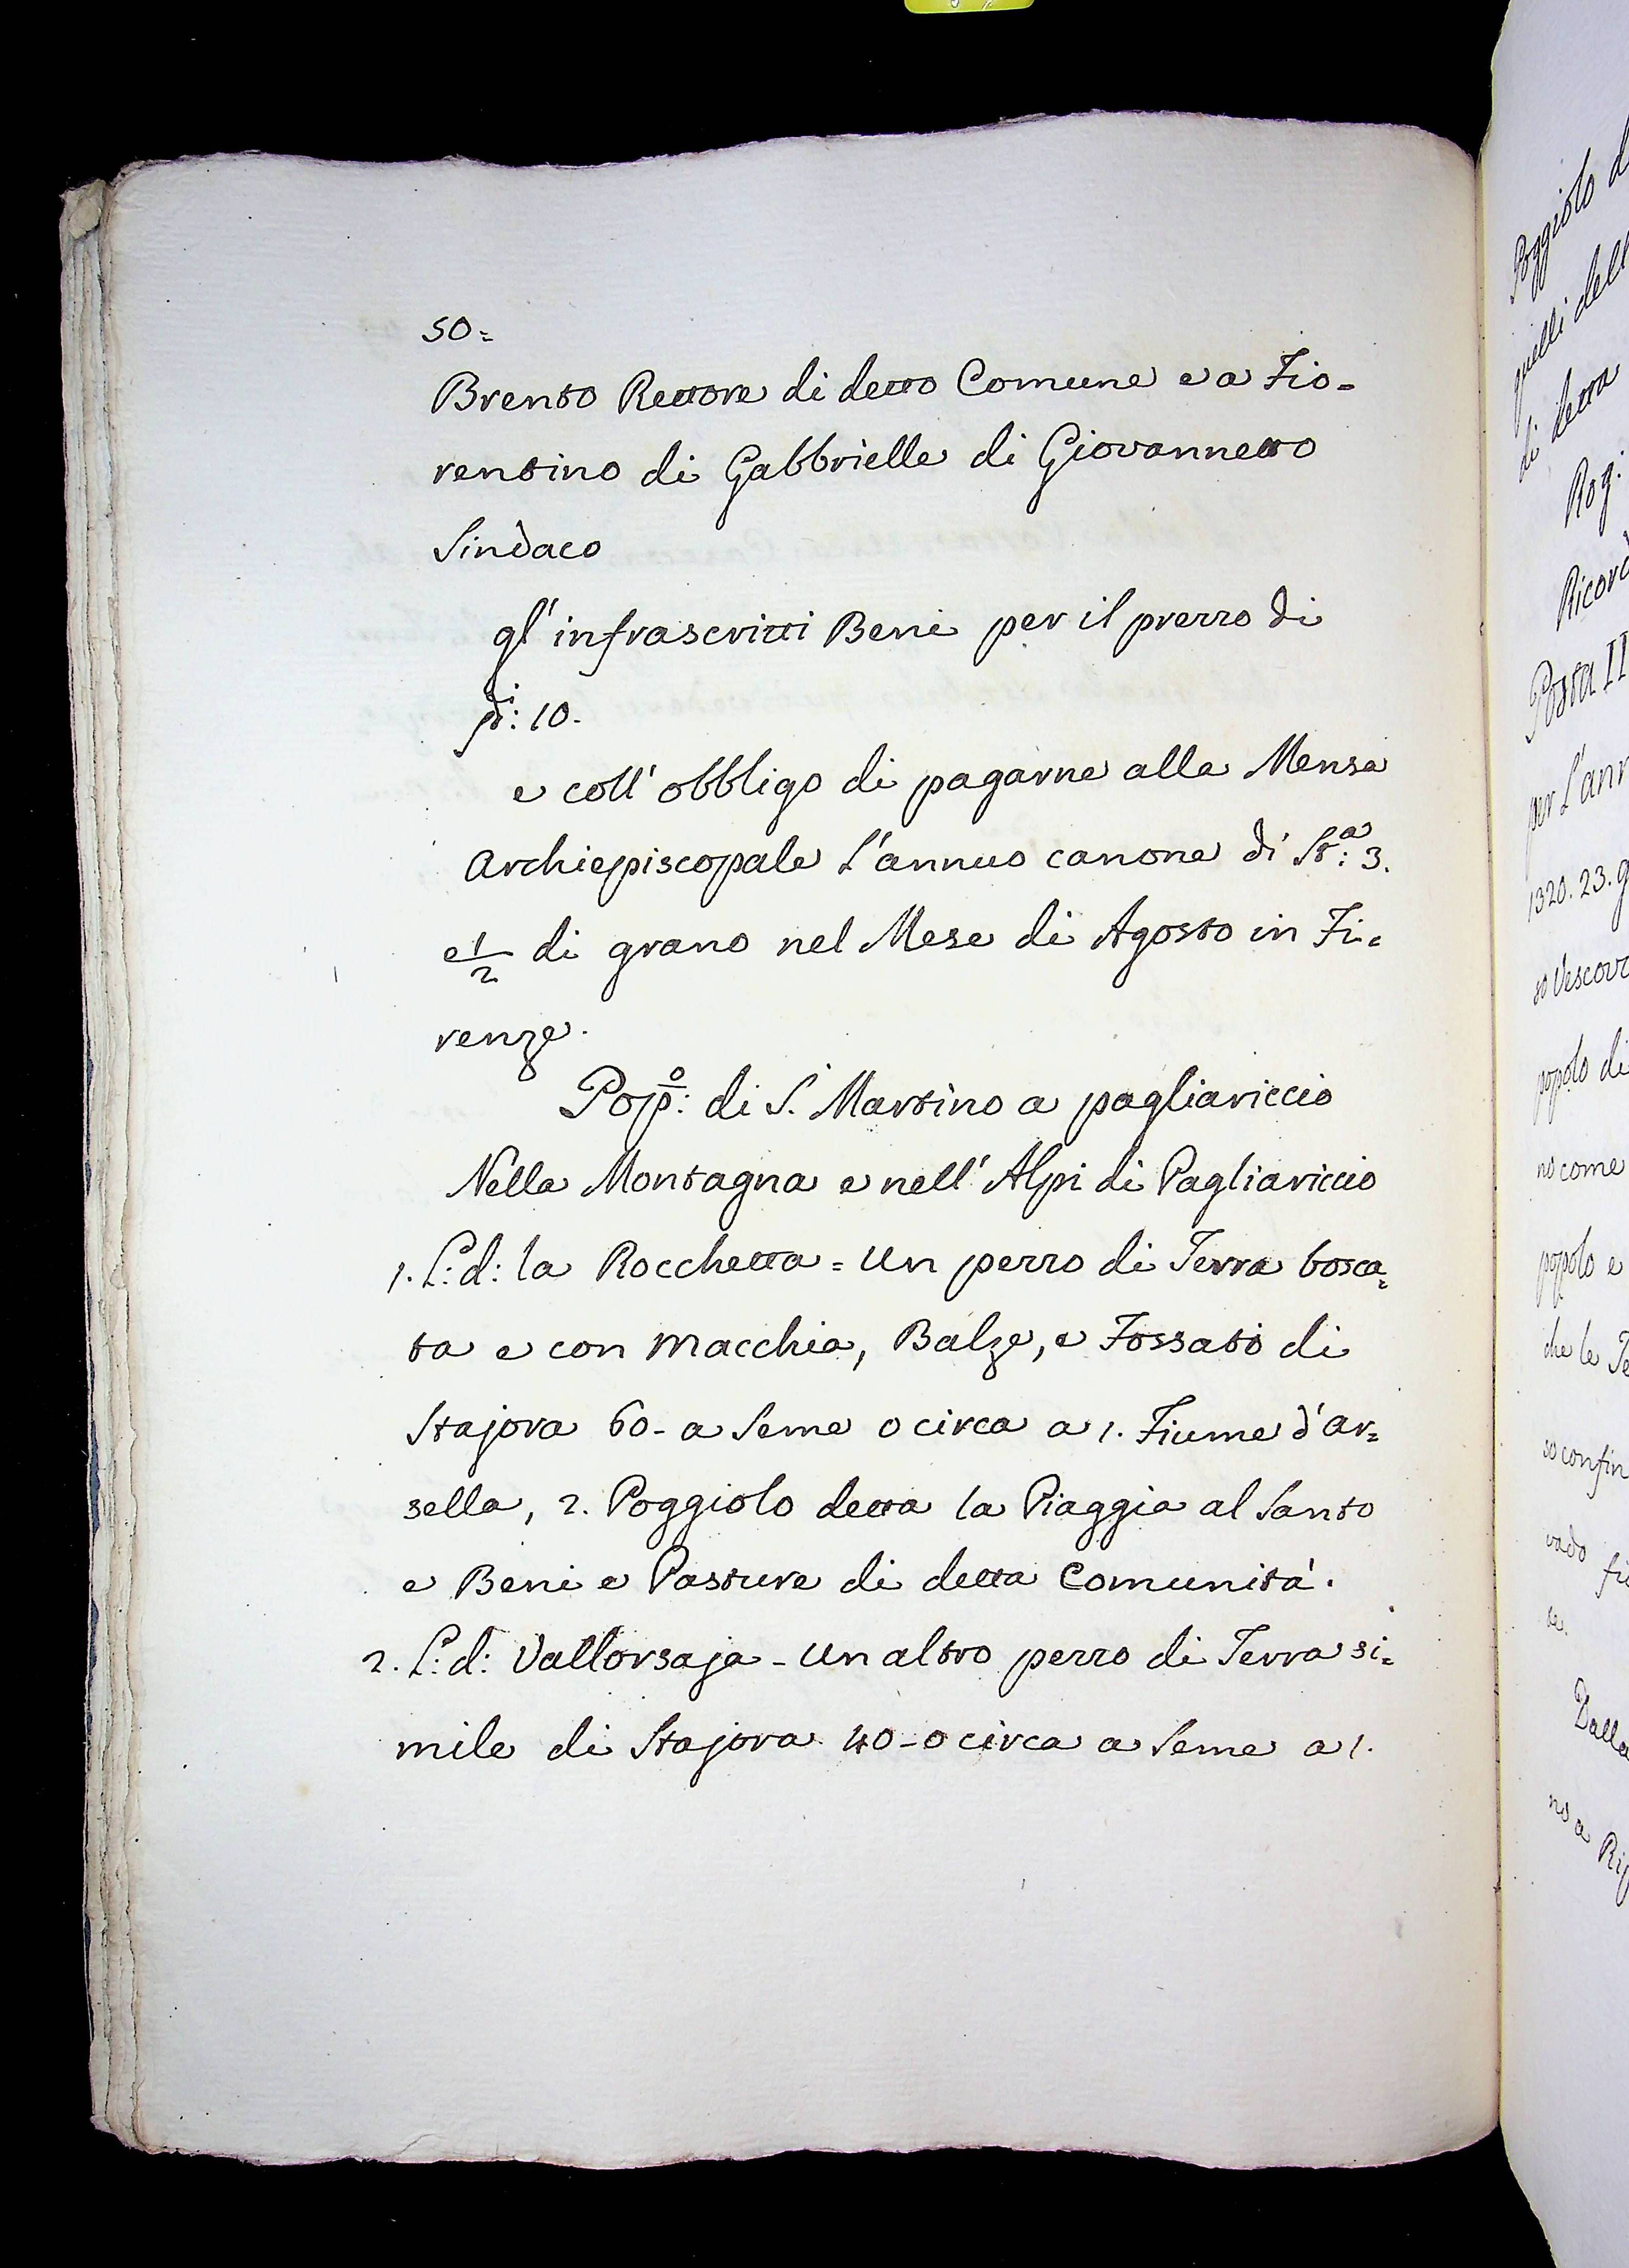 50=
Brento Rettore di detto Comune e a Fio=
rentino di Gabbrielle di Giovannetto
Sindaco
gl' infrascritti Beni per il prezzo di
10.
e coll' obbligo di pagarne alla Mensa
Archiepiscopale l'annuo canone di St.ª: 3.
e 1/2 di grano nel Mese di Agosto in Fi=
renze.
Pop.º: di S. Martino a pagliariccio
Nella Montagna e nell' Alpi di Pagliariccio
1. L: d: la Rocchetta = Un pezzo di Terra bosca=
ta e con macchia, Balze, e Fossato di
Stajora 60 - a Seme o circa a 1. Fiume d'ar=
sella, 2. Poggiolo detta la Piaggia al Santo
e Beni e Pasture di detta Comunità.
2. L: d: Vallorsaja - Un altro pezzo di Terra si=
mile di Stajora 40 - o circa a Seme a 1.
Poggiolo
quelli dell
di detta
Rog:
Posta II
per l'ann
1320. 23. g
popolo di
no come
popolo e
che le Te
so confin
vado
Dalla
no a